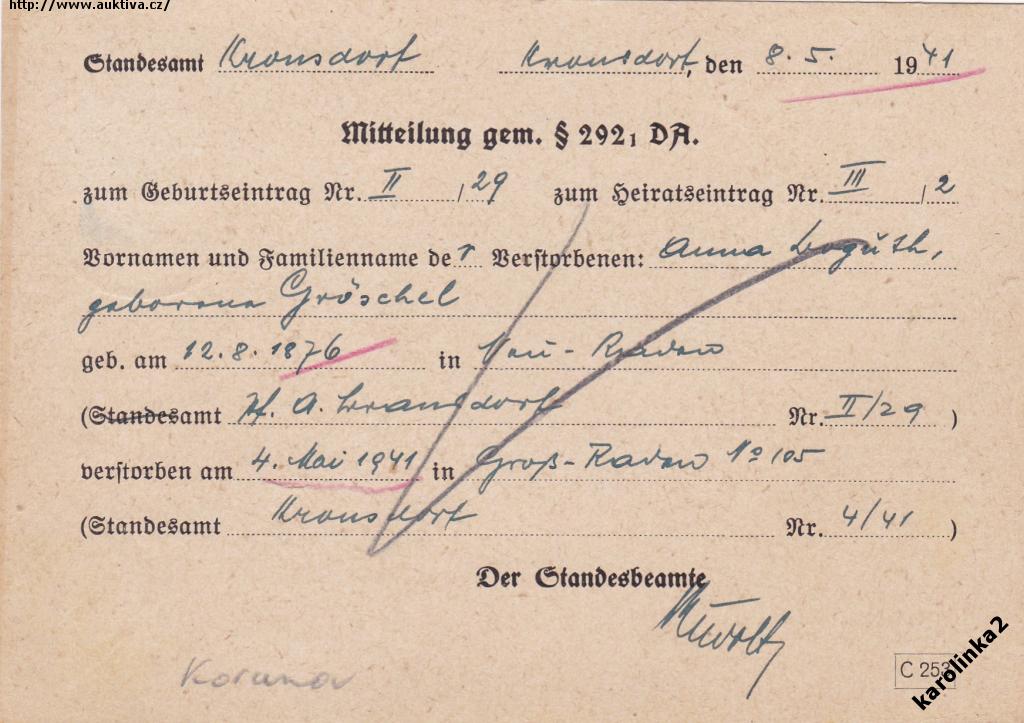 http://www.auktiva.cz/
Standesamt Kronsdorf Kronsdorf, den 8. 5. 1941
Mitteilung gem. § 292, DA.
zum Geburtseintrag Nr. II/29 zum Heiratseintrag Nr. III/2
Vornamen und Familienname der Verstorbenen: Anna
geborene Gröschel
geb. am 12. 8. 1876 in Neu-Raden
(Standesamt Nr. II/29)
verstorben am 4. Mai 1941 in Groß-Raden No 105
(Standesamt Kronsdorf Nr. 4/41)
Der Standesbeamte
C 253
karolinka2